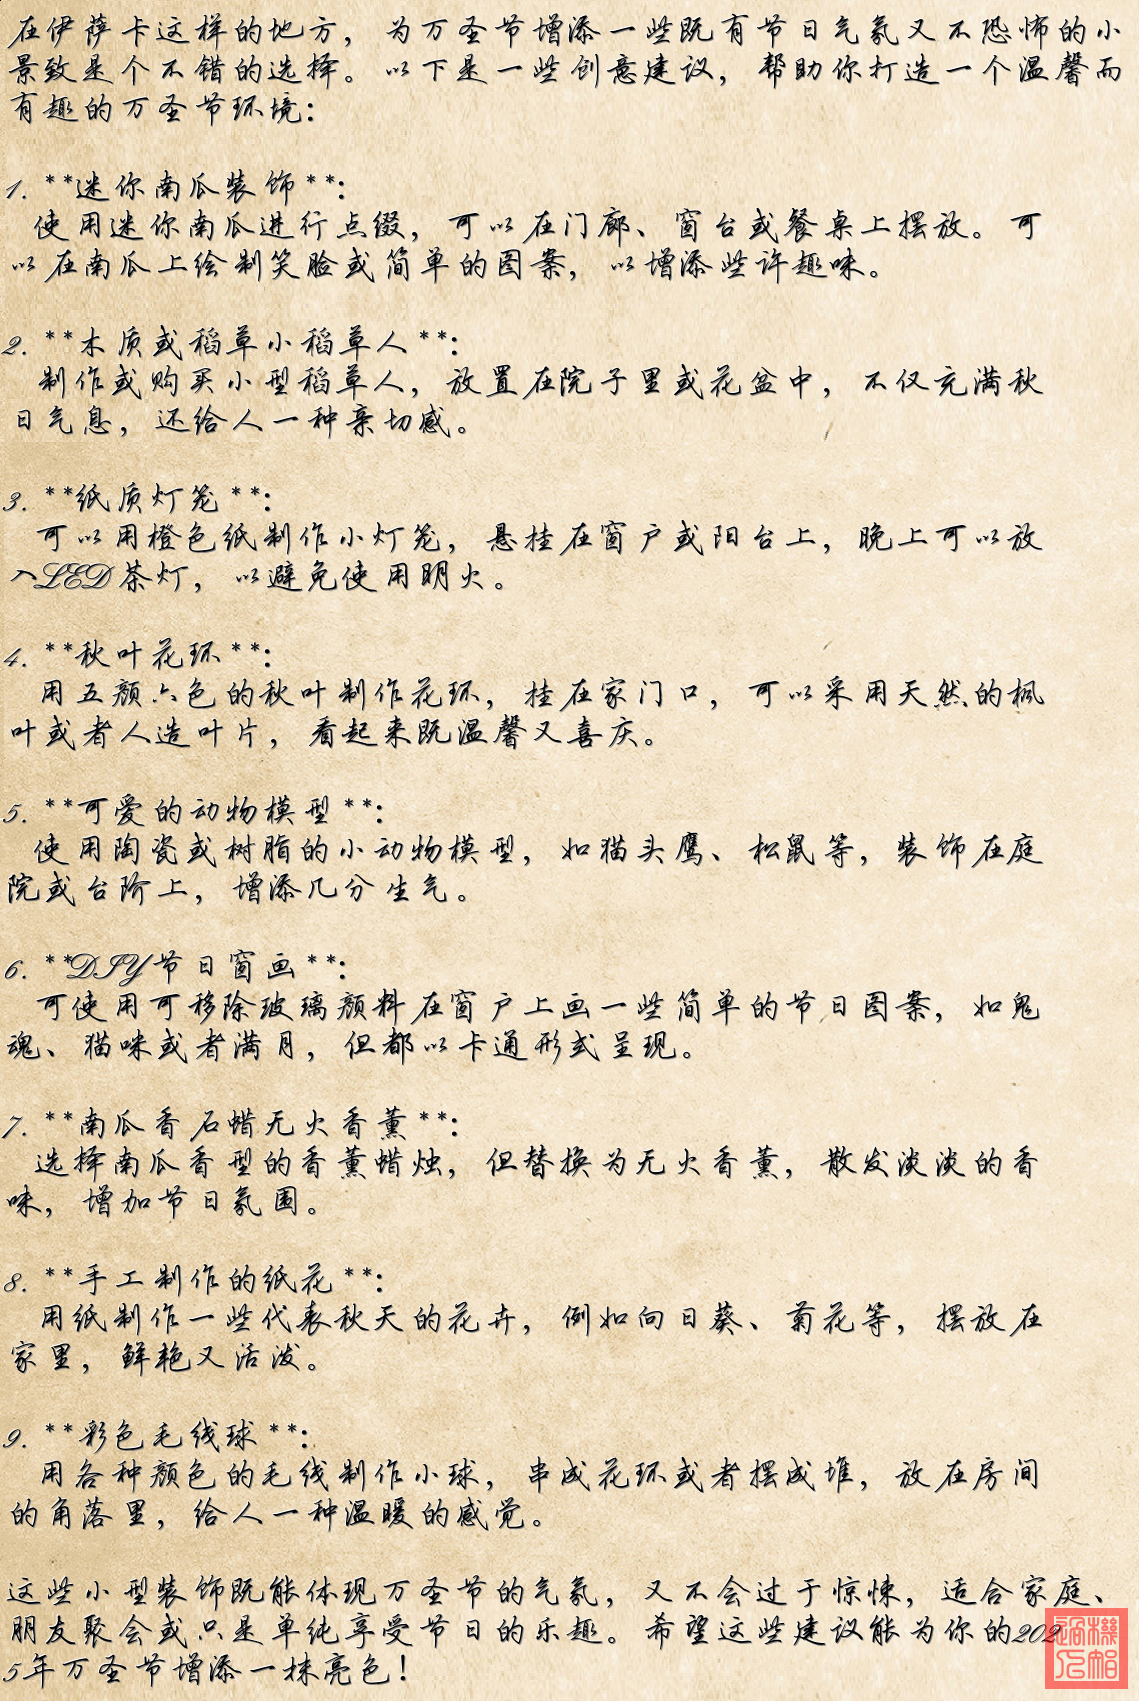 在伊萨卡这样的地方，为万圣节增添一些既有节日气氛又不恐怖的小
景致是个不错的选择。以下是一些创意建议，帮助你打造一个温馨而
有趣的万圣节环境：
1. **迷你南瓜装饰**：
使用迷你南瓜进行点缀，可以在门廊、窗台或餐桌上摆放。可
以在南瓜上绘制笑脸或简单的图案，以增添些许趣味。
2. **木质或稻草小稻草人**：
制作或购买小型稻草人，放置在院子里或花盆中，不仅充满秋
日气息，还给人一种亲切感。
3. **纸质灯笼**：
可以用橙色纸制作小灯笼，悬挂在窗户或阳台上，晚上可以放
入LED茶灯，以避免使用明火。
4. **秋叶花环**：
用五颜六色的秋叶制作花环，挂在家门口，可以采用天然的枫
叶或者人造叶片，看起来既温馨又喜庆。
5. **可爱的动物模型**：
使用陶瓷或树脂的小动物模型，如猫头鹰、松鼠等，装饰在庭
院或台阶上，增添几分生气。
6. **DIY节日窗画**：
可使用可移除玻璃颜料在窗户上画一些简单的节日图案，如鬼
魂、猫咪或者满月，但都以卡通形式呈现。
7. **南瓜香石蜡无火香薰**：
选择南瓜香型的香薰蜡烛，但替换为无火香薰，散发淡淡的香
味，增加节日氛围。
8. **手工制作的纸花**：
用纸制作一些代表秋天的花卉，例如向日葵、菊花等，摆放在
家里，鲜艳又活泼。
9. **彩色毛线球**：
用各种颜色的毛线制作小球，串成花环或者摆成堆，放在房间
的角落里，给人一种温暖的感觉。
这些小型装饰既能体现万圣节的气氛，又不会过于惊悚，适合家庭、
朋友聚会或只是单纯享受节日的乐趣。希望这些建议能为你的202
5年万圣节增添一抹亮色！